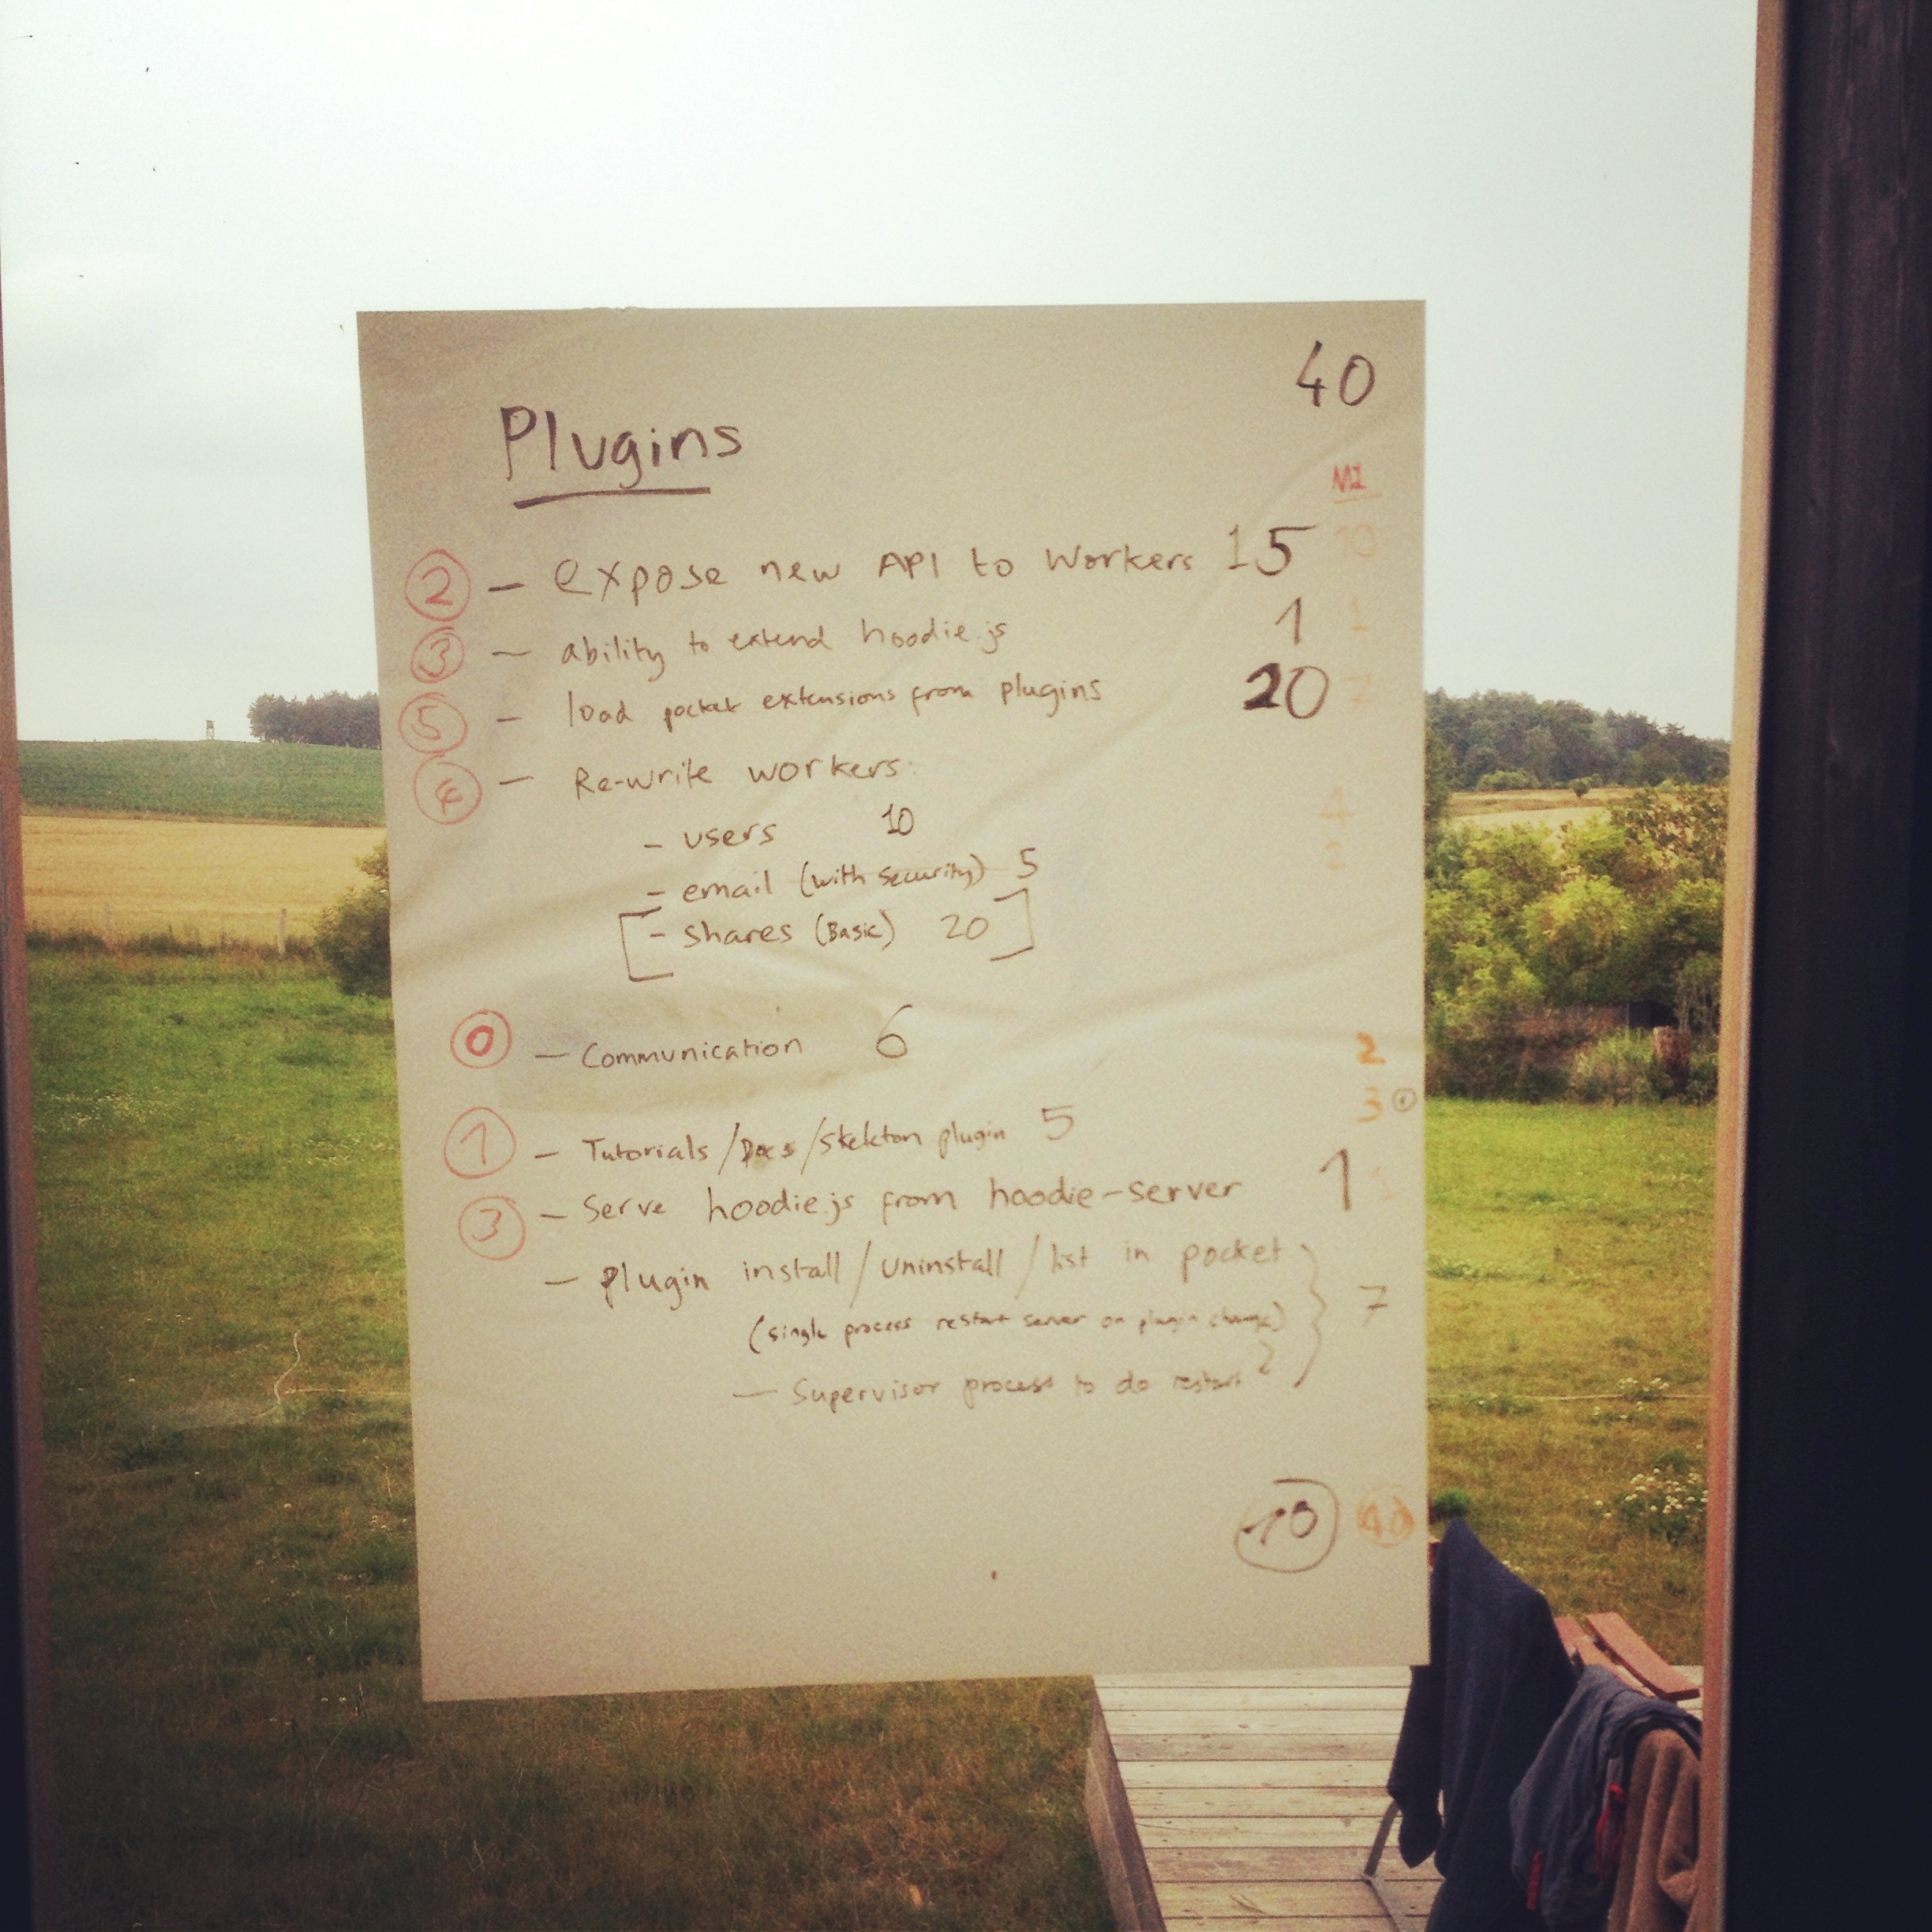 40
Plugins
M1
② - expose new API to Workers 15 10
③ - ability to extend hoodie.js 1 1
⑤ - load pocket extensions from plugins 20 2
④ - Re-write workers:
- users 10 4
- email (with security) 5 2
[- shares (Basic) 20]
⓪ - Communication 6 2
3
① - Tutorials/Docs/Skeleton plugin 5
③ - Serve hoodie.js from hoodie-server 1 1
- plugin install/uninstall/list in pocket
(single process restart server on plugin change) } 7
- Supervisor process to do restart